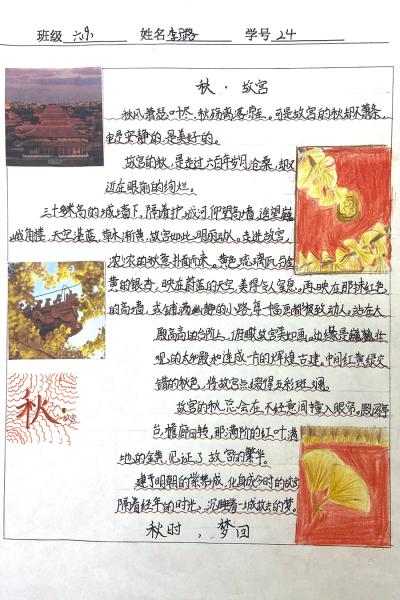 班级 六(9) 姓名 李璐 学号 24
秋·故宫
秋风萧瑟叶尽,秋殇离落尽。可是故宫的秋却不萧条,
也是安静的,是美好的。
故宫的秋,是走过六百年岁月沧桑,却又
近在眼前的绚烂。
三十余米高的城墙下,隔着护城河,仰望高墙,遥望巍
城角楼,天空湛蓝,草木渐黄,故宫如此明丽动人。走进故宫,
浓浓的秋意扑面而来。黄色琉璃瓦与金
黄的银杏,映在蔚蓝的天空,美得令人窒息,再映在那抹红色
的高墙,或铺满幽静的小路,每一幅画都极致动人。站在大
殿高高的台阶上,俯瞰故宫美如画。边缘是巍巍壮
观的太和殿和连成片的辉煌古建,中间红黄绿交
错的秋色,将故宫点缀得五彩斑斓。
故宫的秋,总会在不经意间撞入眼帘。殿阁耳
台,雕廊回转,那满阶的红叶,满
地的金黄,见证了故宫的繁华。
建于明朝的紫禁城,化身成今时的故宫
隔着经年的时光,沉睡着一成故去的梦。
秋时,梦回
秋·